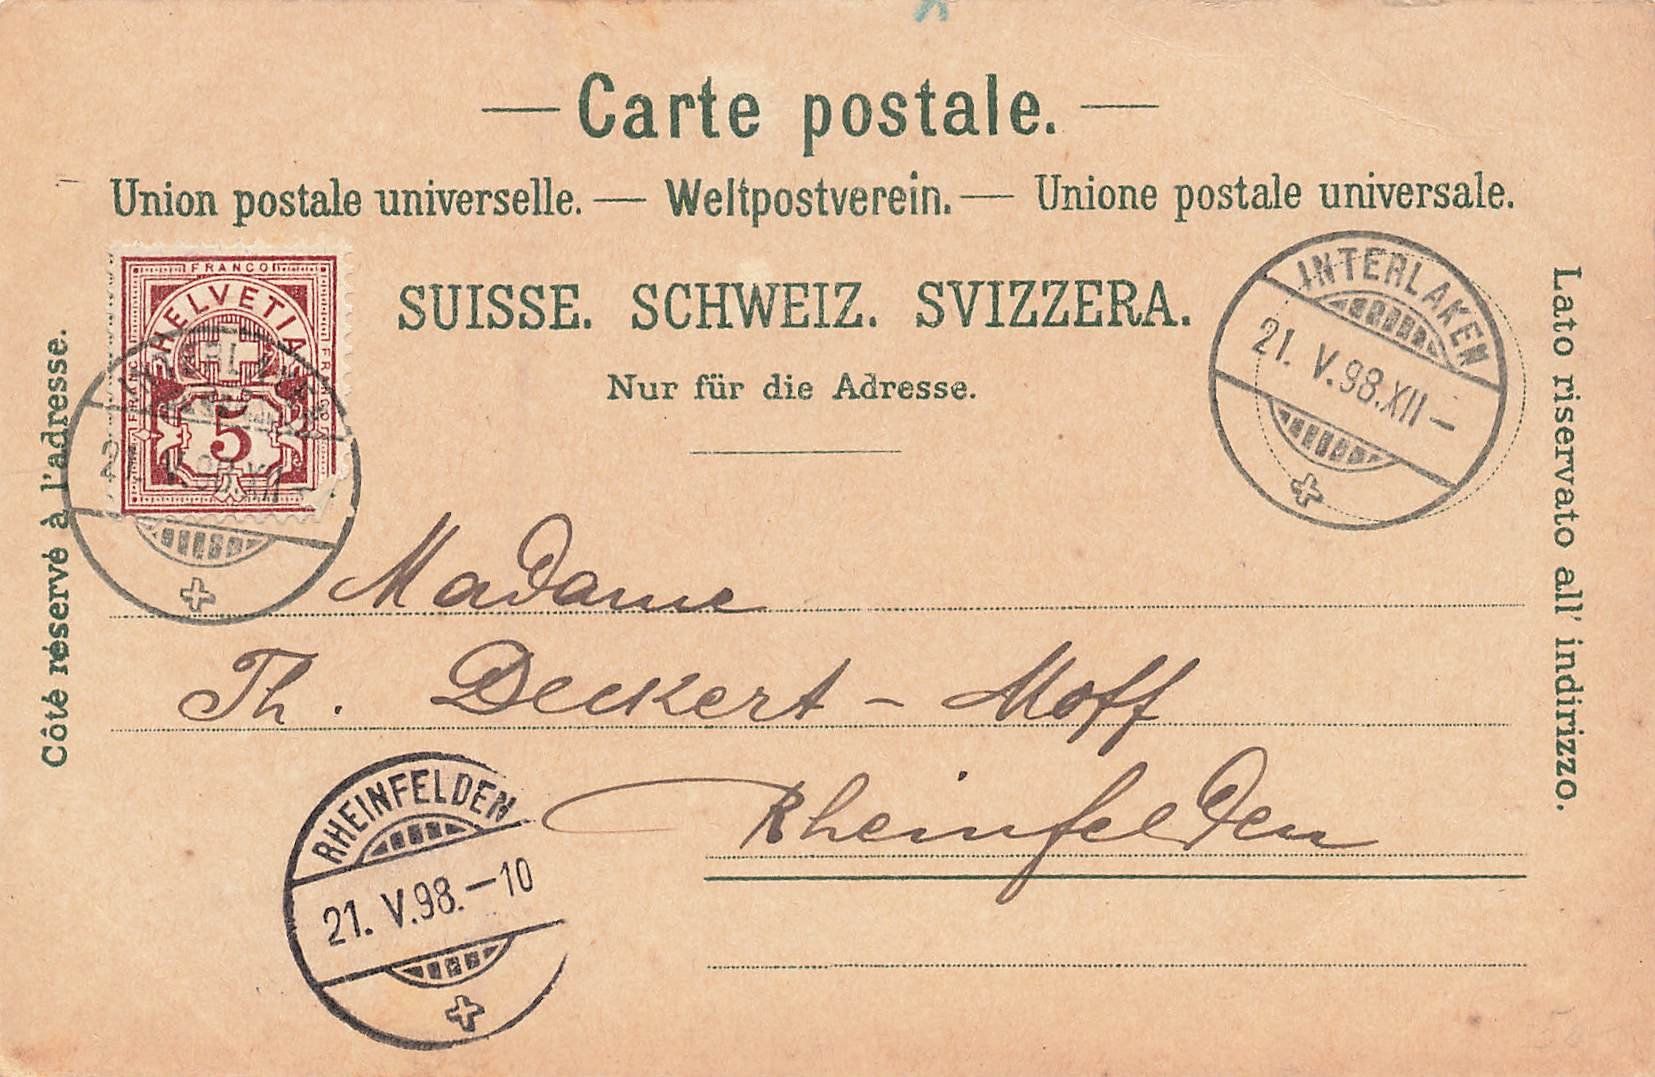 Carte postale.
Union postale universelle. — Weltpostverein. — Unione postale universale.
SUISSE. SCHWEIZ. SVIZZERA.
Nur für die Adresse.
Côté réservé à l'adresse.
Lato riservato all' indirizzo.
FRANCO
HELVETIA
FRANCO
FRANCO
5
INTERLAKEN
21. V. 98. XII –
INTERLAKEN
21. V. 98. XII –
Madame
Th. Deckert – Moff
Rheinfelden
RHEINFELDEN
21. V. 98. – 10